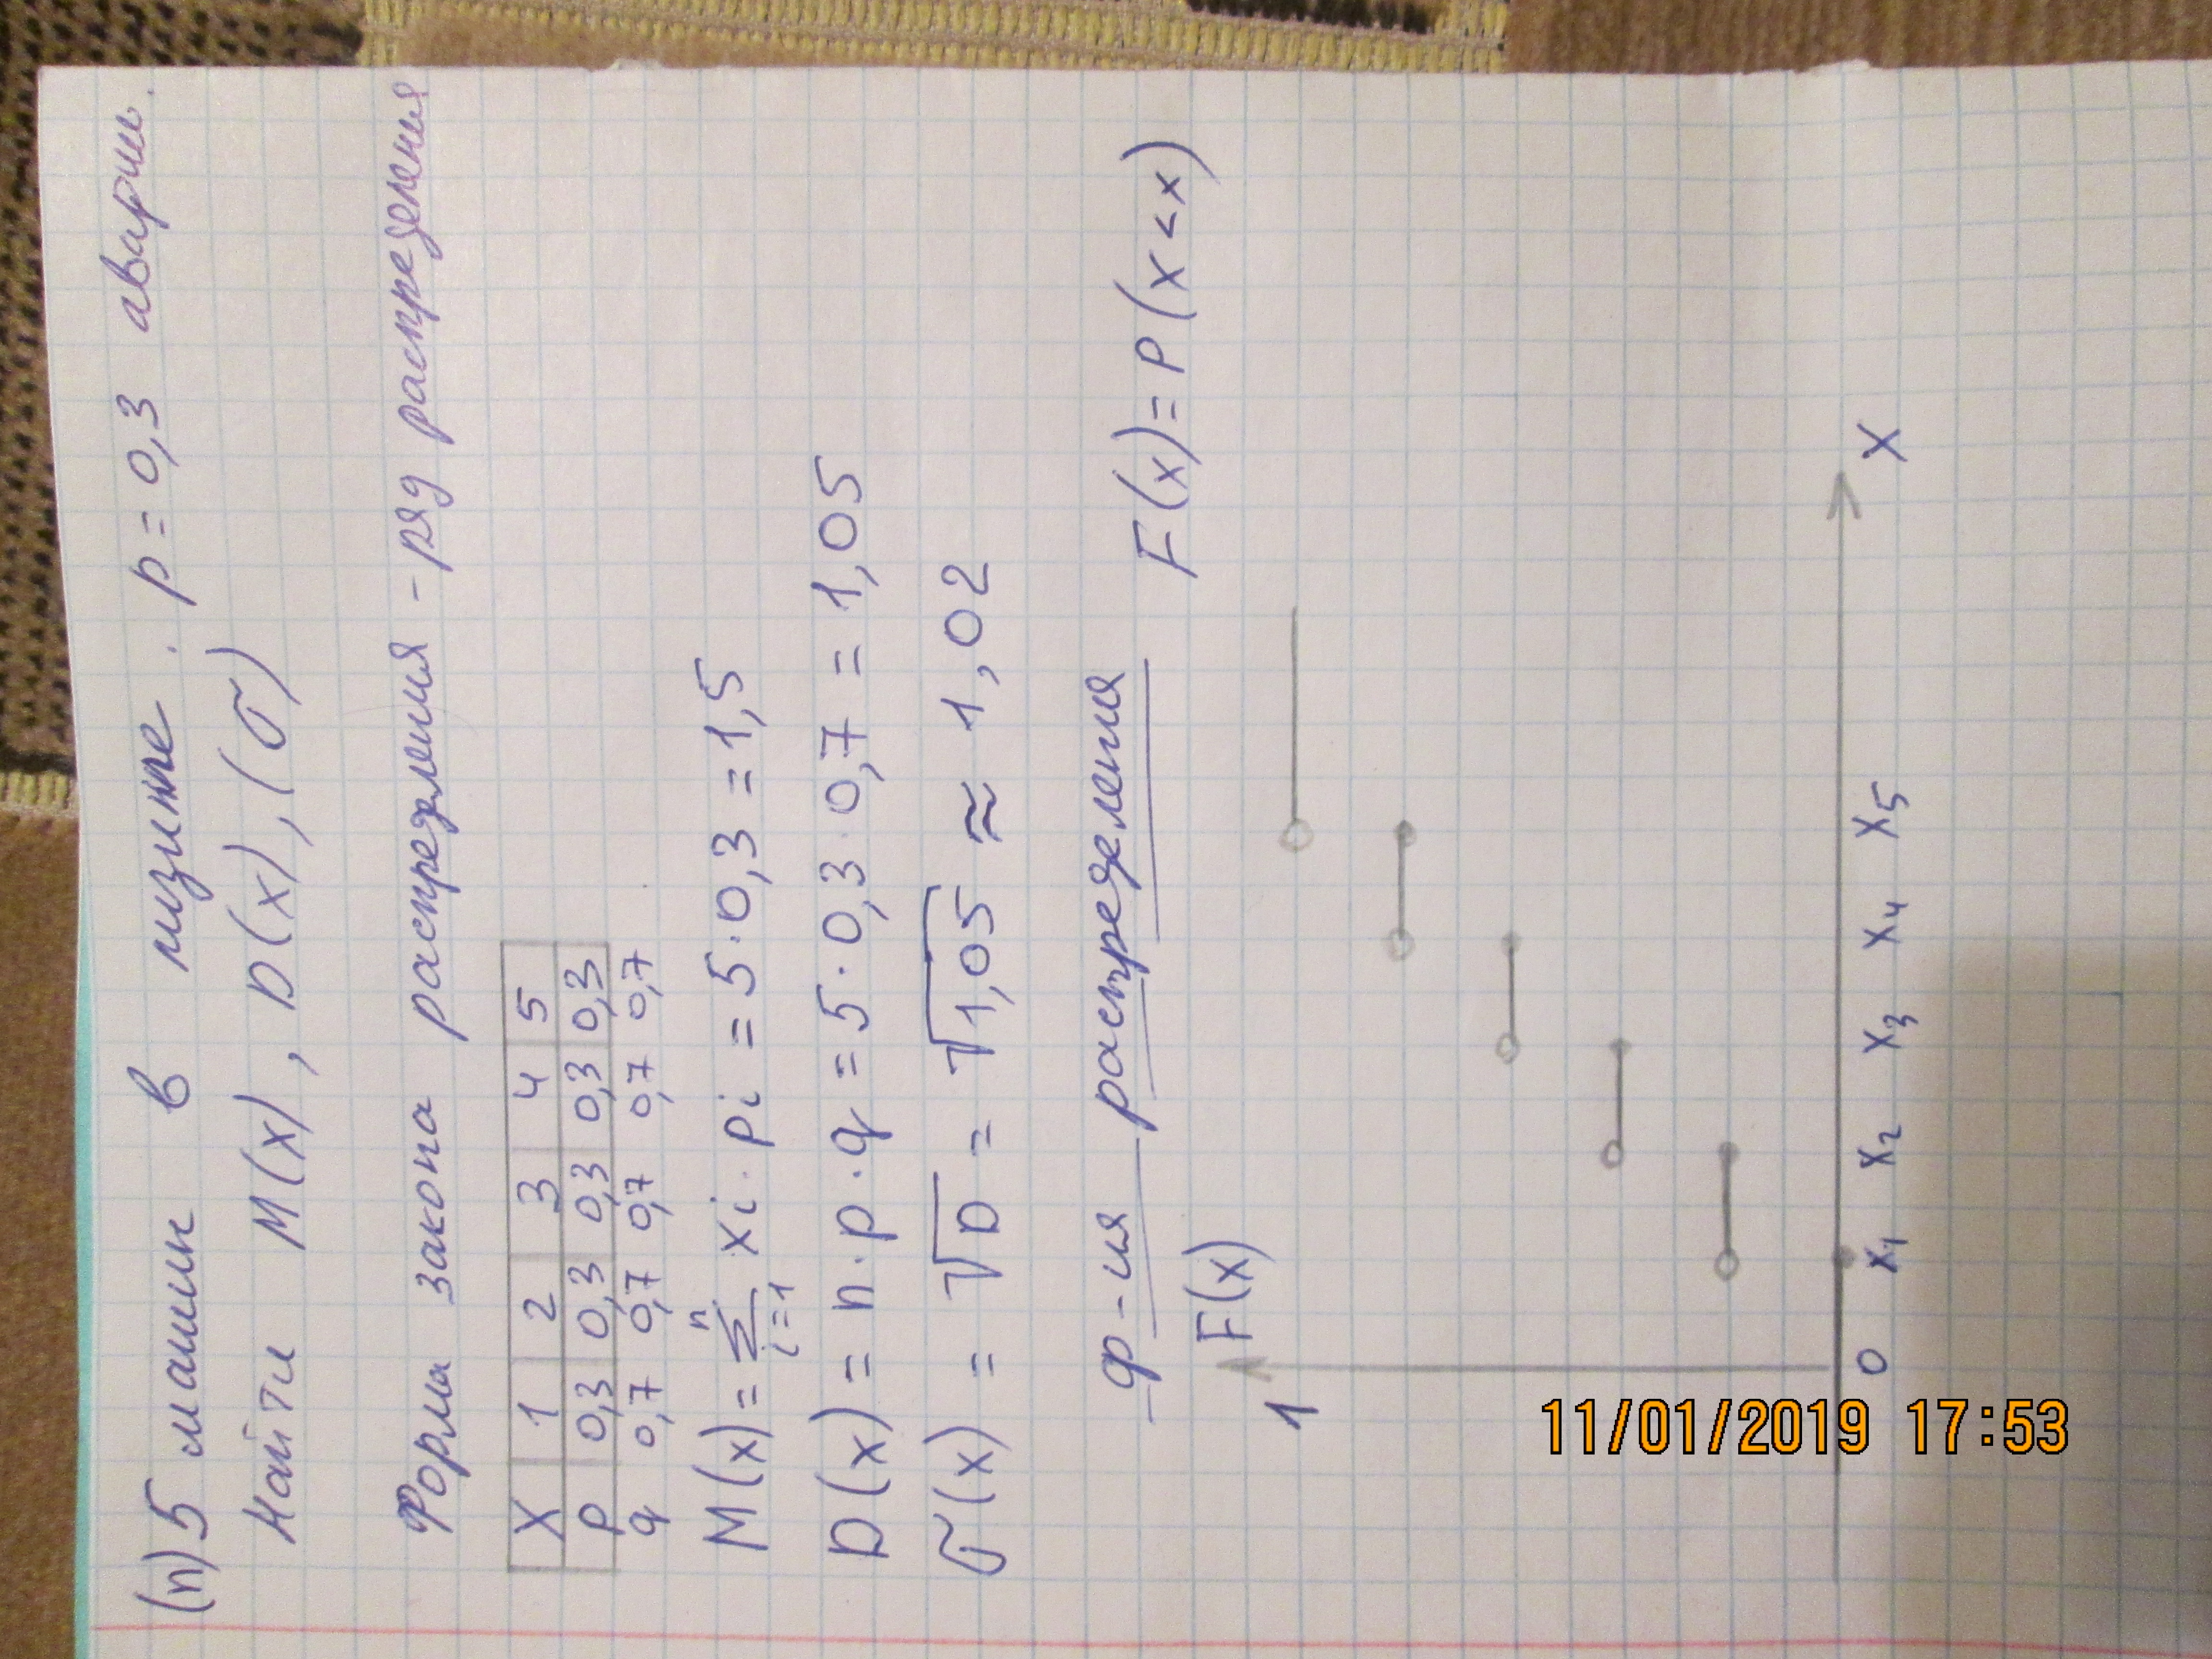 (n) 5 машин в лизинге. p = 0,3 аварии.
Найти M(x), D(x), (σ)
Форма закона распределения - ряд распределения
X 1 2 3 4 5
P 0,3 0,3 0,3 0,3 0,3
q 0,7 0,7 0,7 0,7 0,7
M(x) = n∑i=1 xi · pi = 5 · 0,3 = 1,5
D(x) = n · p · q = 5 · 0,3 · 0,7 = 1,05
σ(x) = √D = √1,05 ≈ 1,02
ф-ия распределения F(x) = P(X < x)
F(x)
1
0 x1 x2 x3 x4 x5 X
11/01/2019 17:53